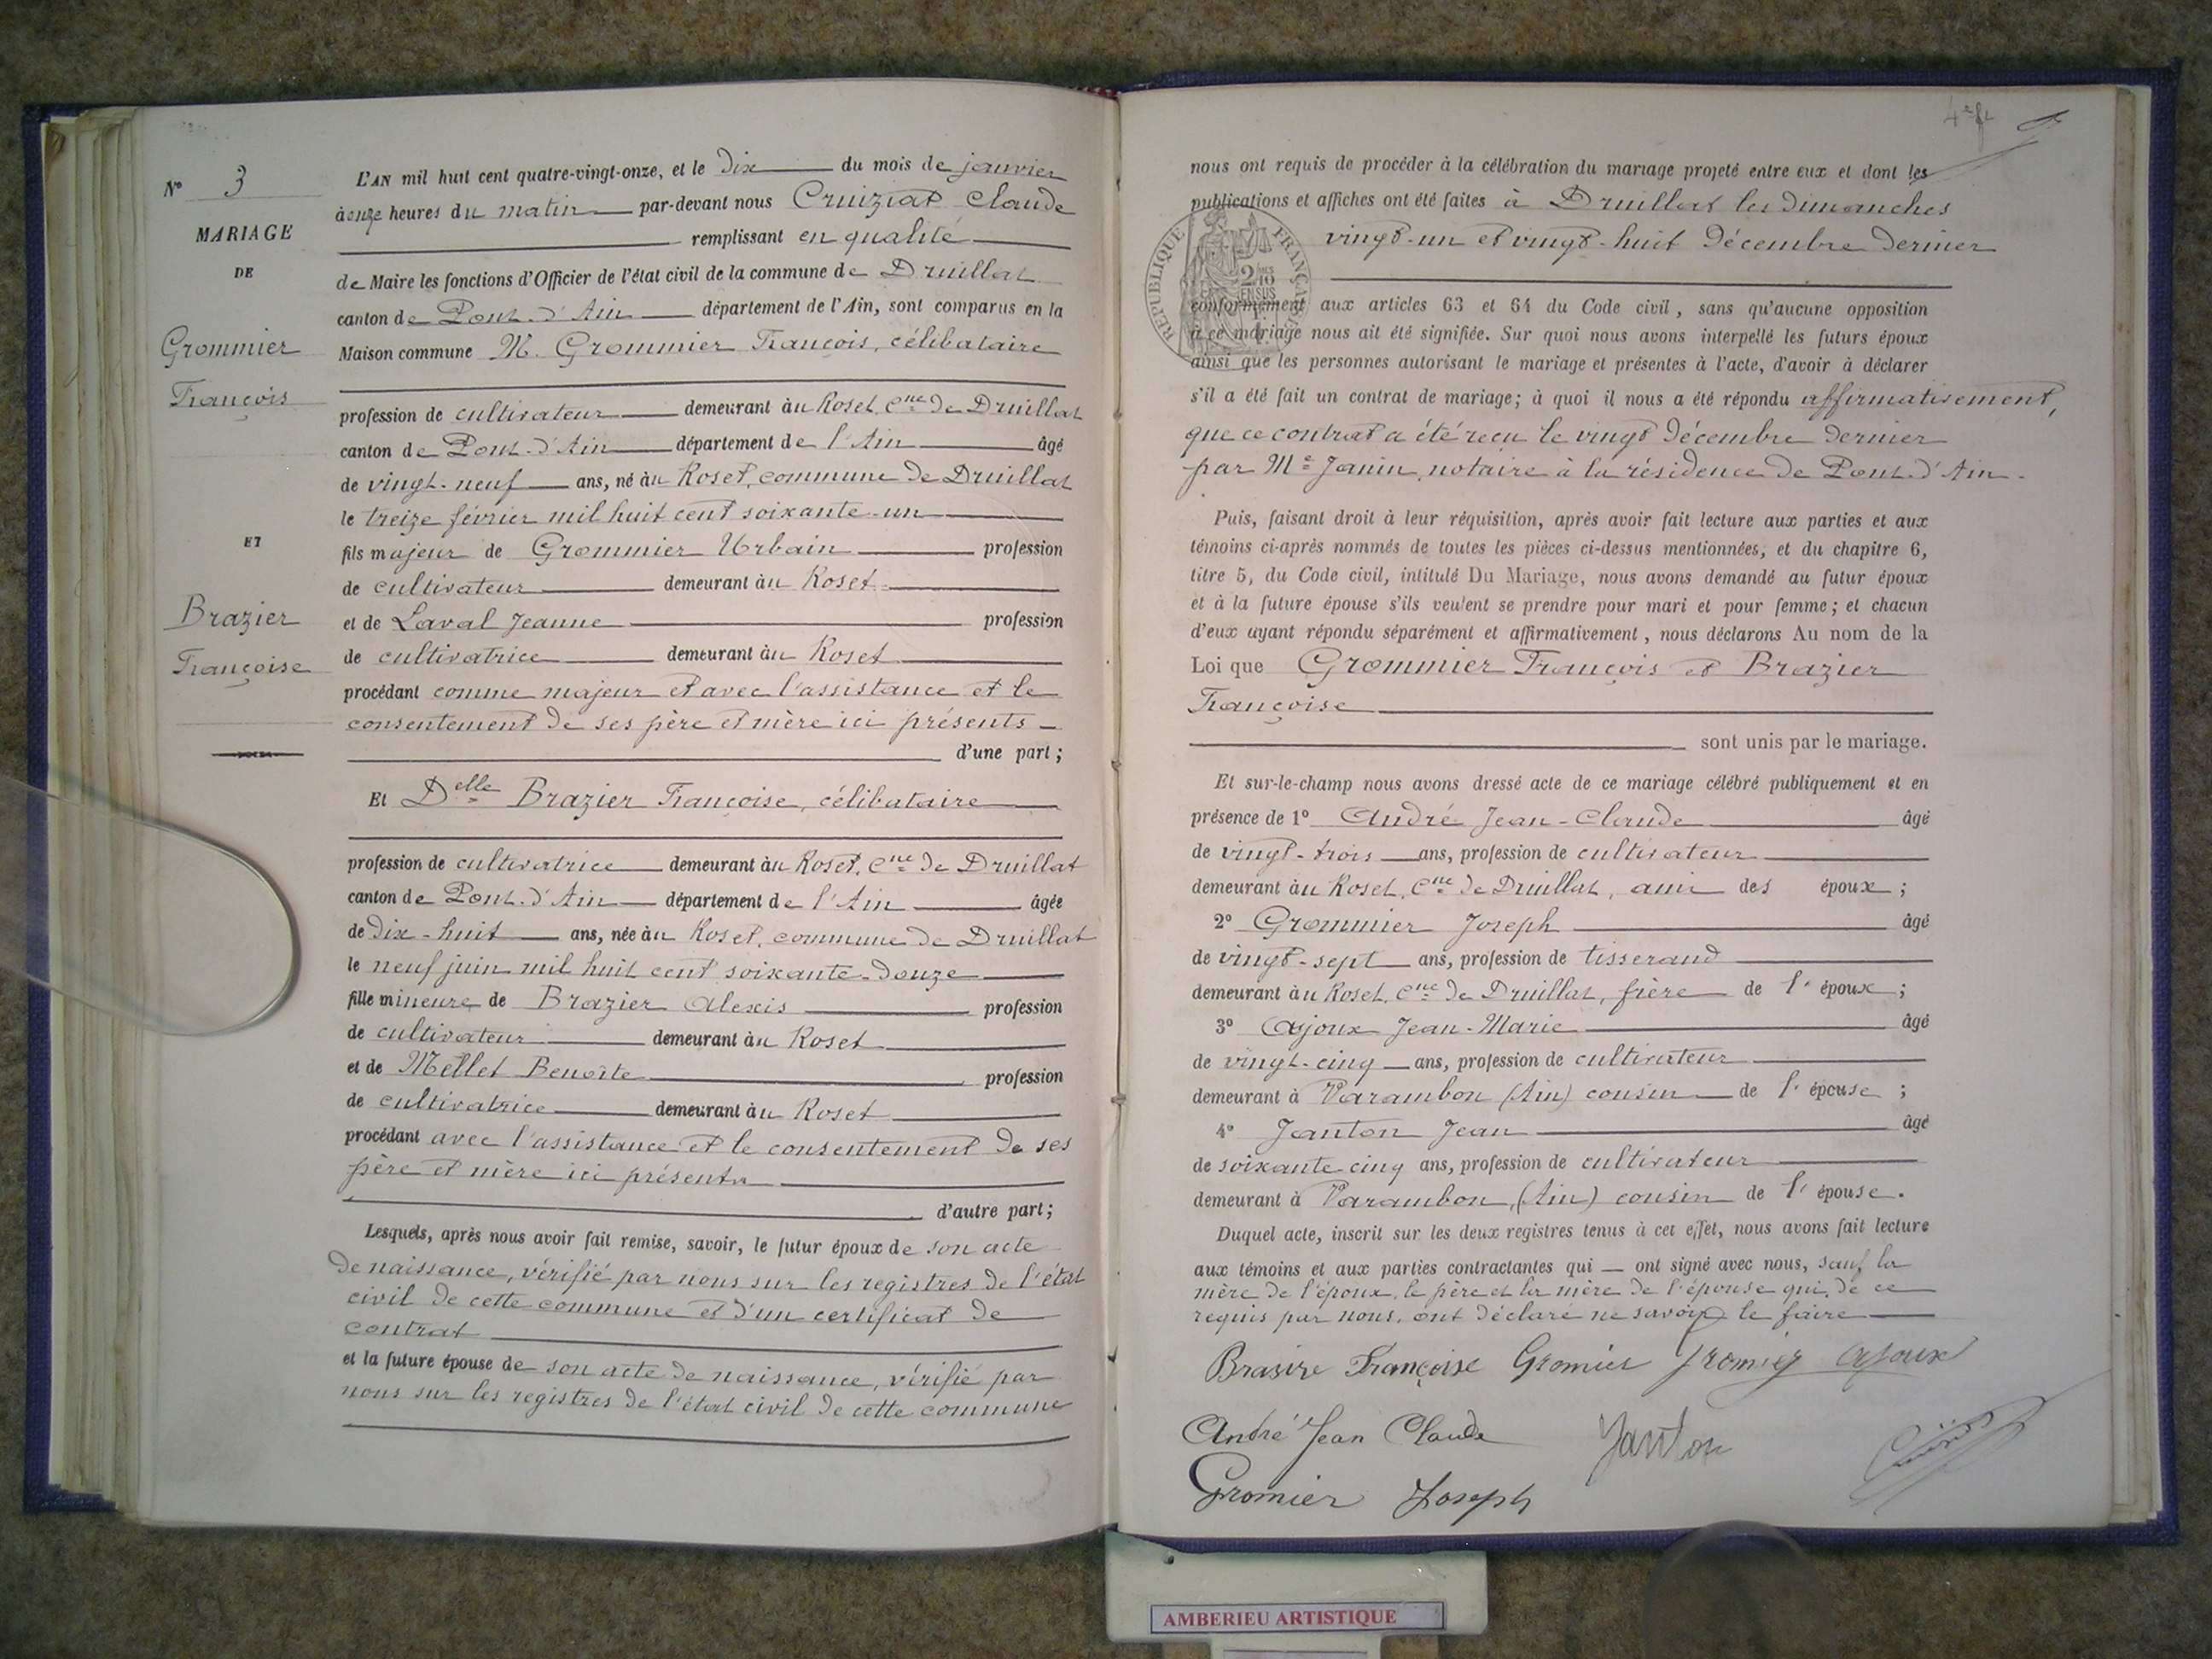 N° 3
MARIAGE
DE
Grommier
François
ET
Brazier
Françoise
L'AN mil huit cent quatre-vingt-onze, et le dix du mois de janvier
à onze heures du matin par-devant nous Cruiziat Claude
remplissant en qualité
de Maire les fonctions d'Officier de l'état civil de la commune de Druillat
canton de Pont-d'Ain département de l'Ain, sont comparus en la
Maison commune M. Grommier François, célibataire
profession de cultivateur demeurant au Roset, Cne de Druillat
canton de Pont-d'Ain département de l'Ain âgé
de vingt-neuf ans, né au Roset, commune de Druillat
le treize février mil huit cent soixante-un
fils majeur de Grommier Urbain profession
de cultivateur demeurant au Roset
et de Laval Jeanne profession
de cultivatrice demeurant au Roset
procédant comme majeur et avec l'assistance et le
consentement de ses père et mère ici présents
d'une part;
Et Delle Brazier Françoise, célibataire
profession de cultivatrice demeurant au Roset, Cne de Druillat
canton de Pont-d'Ain département de l'Ain âgée
de dix-huit ans, née au Roset, commune de Druillat
le neuf juin mil huit cent soixante-douze
fille mineure de Brazier Alexis profession
de cultivateur demeurant au Roset
et de Mellet Benoite profession
de cultivatrice demeurant au Roset
procédant avec l'assistance et le consentement de ses
père et mère ici présents
d'autre part;
Lesquels, après nous avoir fait remise, savoir, le futur époux de son acte
de naissance, vérifié par nous sur les registres de l'état
civil de cette commune et d'un certificat de
contrat
et la future épouse de son acte de naissance, vérifié par
nous sur les registres de l'état civil de cette commune
nous ont requis de procéder à la célébration du mariage projeté entre eux et dont les
publications et affiches ont été faites à Druillat les dimanches
vingt-un et vingt-huit décembre dernier
RÉPUBLIQUE FRANÇAISE
conformément aux articles 63 et 64 du Code civil, sans qu'aucune opposition
à ce mariage nous ait été signifiée. Sur quoi nous avons interpellé les futurs époux
ainsi que les personnes autorisant le mariage et présentes à l'acte, d'avoir à déclarer
s'il a été fait un contrat de mariage; à quoi il nous a été répondu affirmativement,
que ce contrat a été reçu le vingt décembre dernier
par Me Janin, notaire à la résidence de Pont-d'Ain.
Puis, faisant droit à leur réquisition, après avoir fait lecture aux parties et aux
témoins ci-après nommés de toutes les pièces ci-dessus mentionnées, et du chapitre 6,
titre 5, du Code civil, intitulé Du Mariage, nous avons demandé au futur époux
et à la future épouse s'ils veulent se prendre pour mari et pour femme; et chacun
d'eux ayant répondu séparément et affirmativement, nous déclarons Au nom de la
Loi que Grommier François et Brazier
Françoise
sont unis par le mariage.
Et sur-le-champ nous avons dressé acte de ce mariage célébré publiquement et en
présence de 1° André Jean-Claude âgé
de vingt-trois ans, profession de cultivateur
demeurant au Roset, Cne de Druillat, ami des époux;
2° Grommier Joseph âgé
de vingt-sept ans, profession de tisserand
demeurant au Roset, Cne de Druillat, frère de l'époux;
3° Ajoux Jean-Marie âgé
de vingt-cinq ans, profession de cultivateur
demeurant à Varambon (Ain) cousin de l'épouse;
4° Janton Jean âgé
de soixante-cinq ans, profession de cultivateur
demeurant à Varambon, (Ain) cousin de l'épouse.
Duquel acte, inscrit sur les deux registres tenus à cet effet, nous avons fait lecture
aux témoins et aux parties contractantes qui ont signé avec nous, sauf la
mère de l'époux, le père et la mère de l'épouse qui, de ce
requis par nous, ont déclaré ne savoir le faire
Brasire Françoise Gromier Gromier Ajoux
André Jean Claude Janton
Gromier Joseph
AMBERIEU ARTISTIQUE